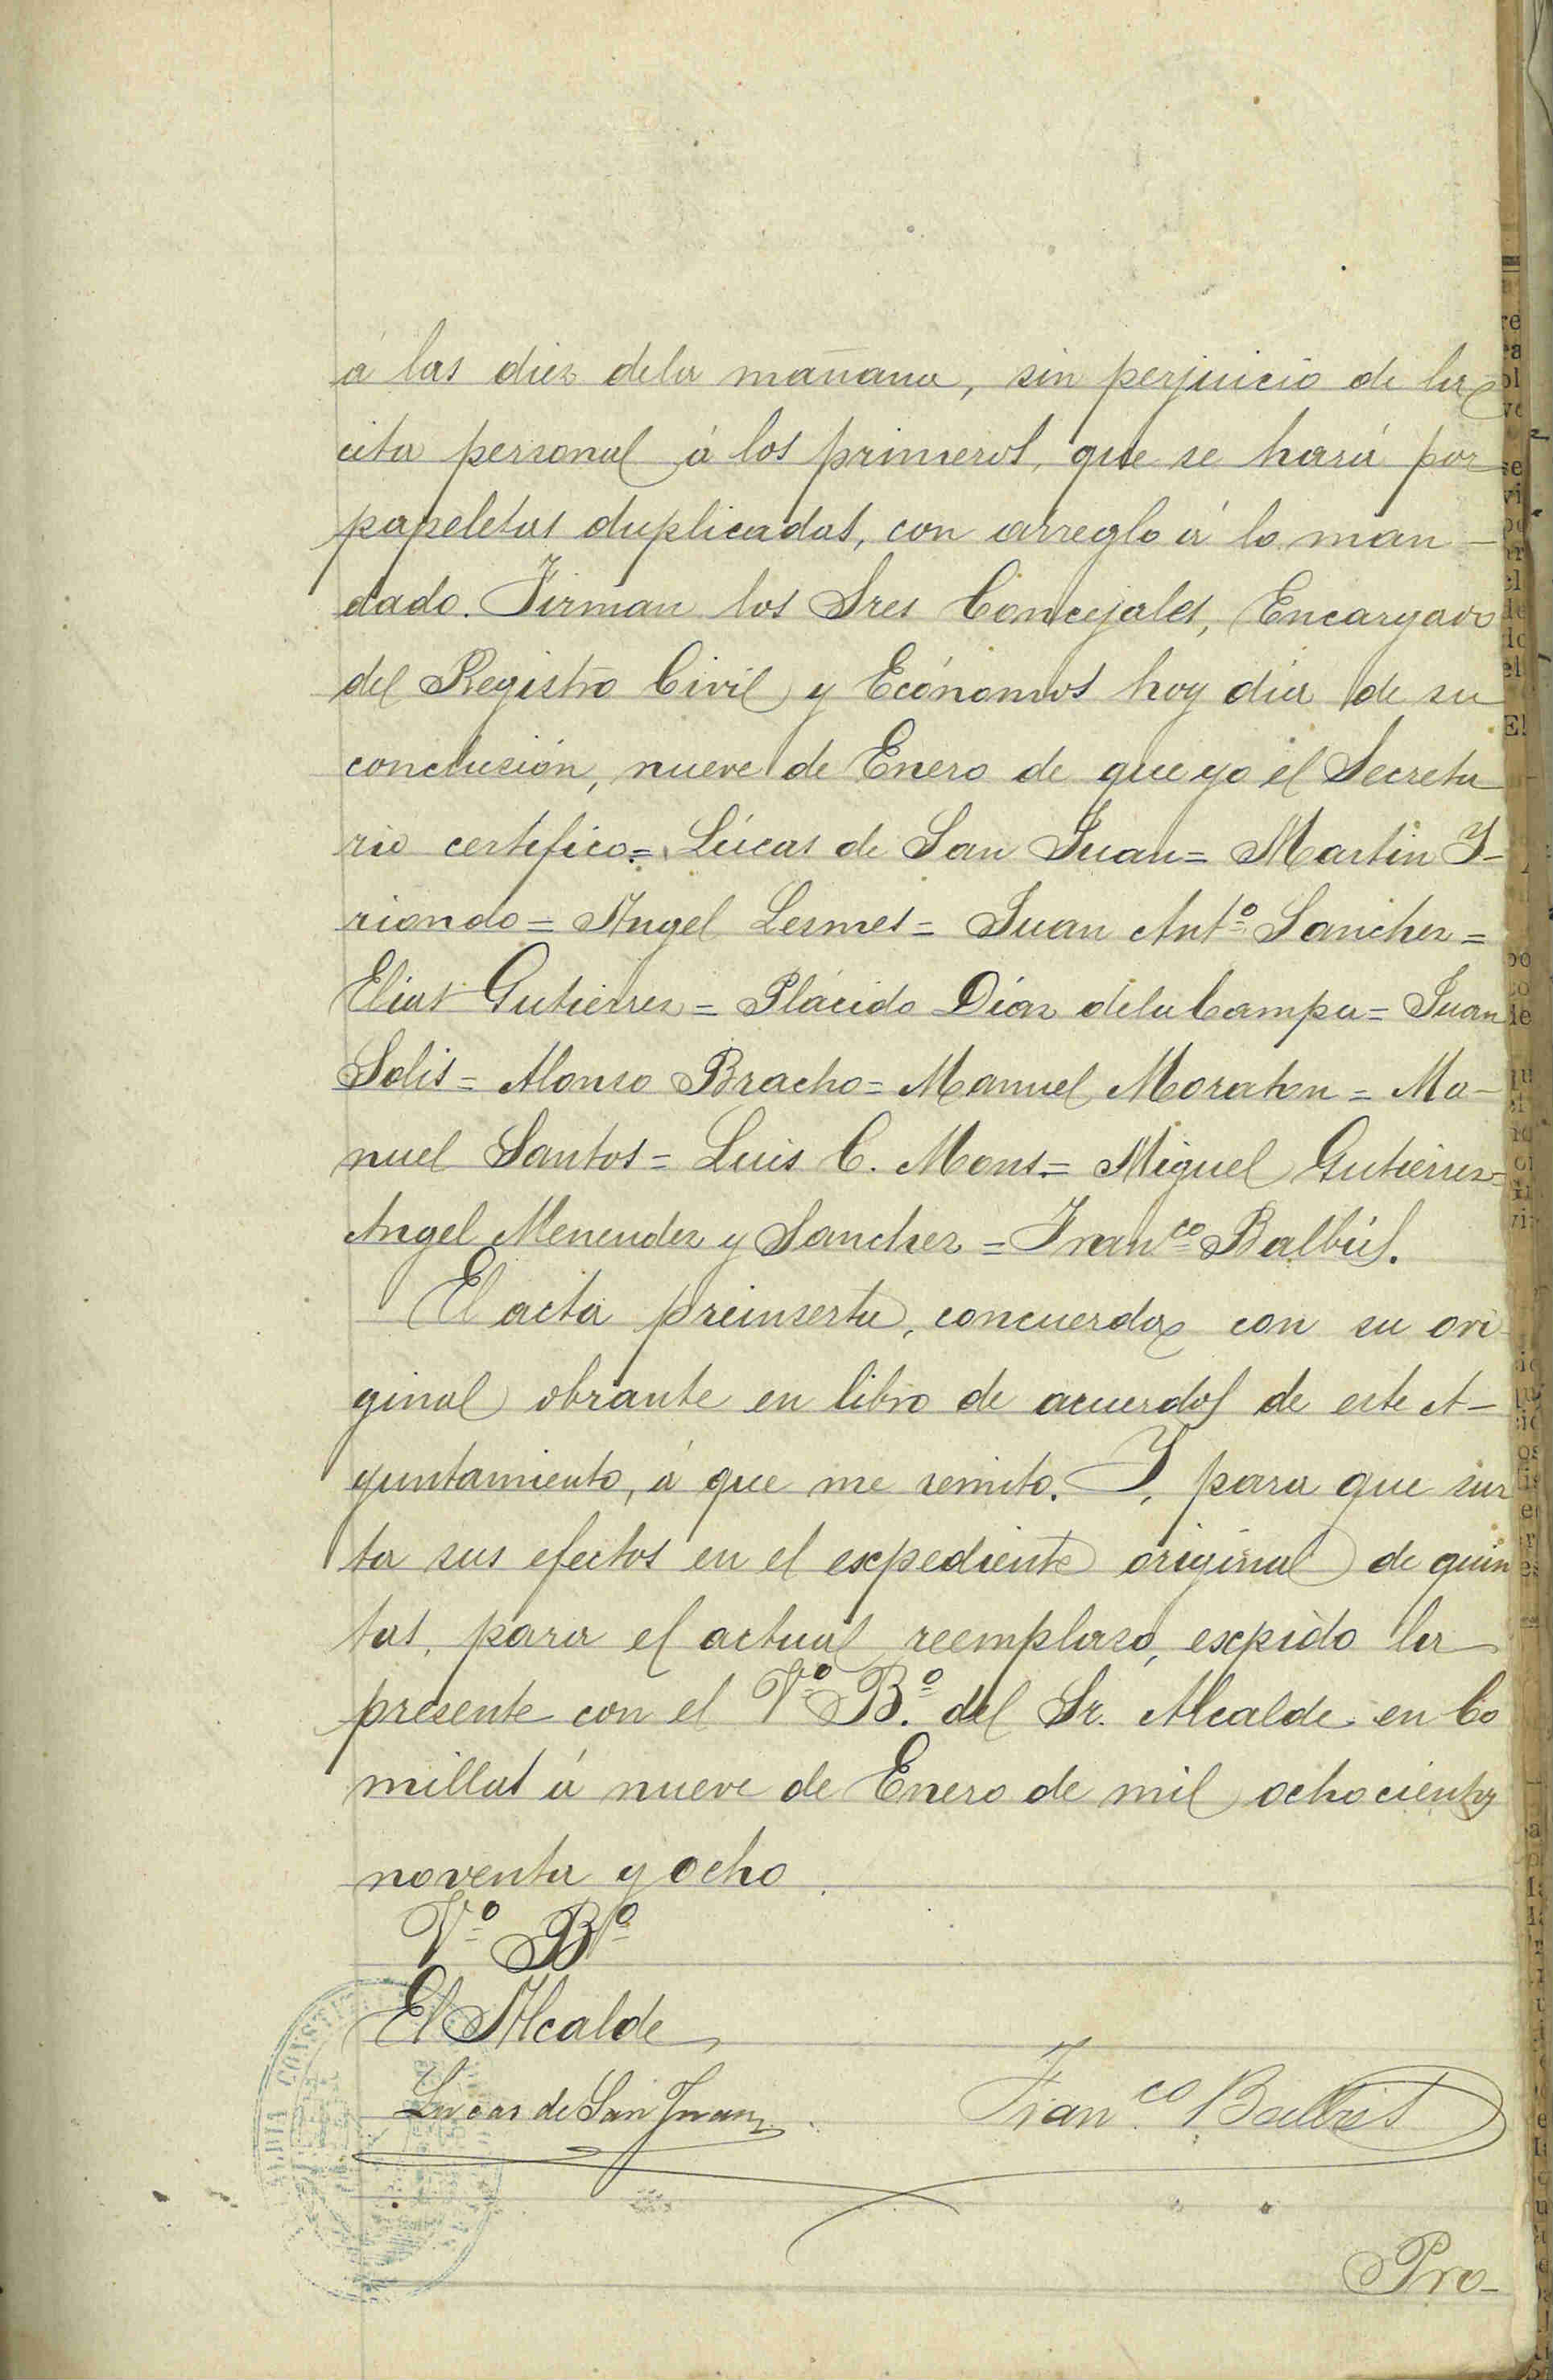 á las diez dela mañana, sin perjuicio de la
cita personal á los primeros, que se hará por
papeletas duplicadas, con arreglo á lo man-
dado. Firman los Sres Concejales, Encargado
del Registro Civil y Ecónomos hoy dia de su
conclusión, nueve de Enero de que yo el Secreta
rio certifico=. Lúcas de San Juan= Martin Y-
riondo= Angel Lesmes= Juan Antº Sanchez=
Elias Gutierrez= Plácido Díaz dela Campa= Juan
Solis= Alonso Bracho= Manuel Moraton= Ma-
nuel Santos= Luis C. Mons.= Miguel Gutierrez=
Angel Menendez y Sanchez= Franco Balbás.
El acta preinserta, concuerda con su ori
ginal obrante en libro de acuerdos de este A-
yuntamiento, á que me remito. Y, para que sur
ta sus efectos en el expediente original de quin
tas, para el actual reemplazo, expido la
presente con el Vº Bº. del Sr. Alcalde en Co
millas á nueve de Enero de mil ochocientos
noventa y ocho
Vº Bº
El Alcalde
Lucas de San Juan Franco Balbás
Pro-